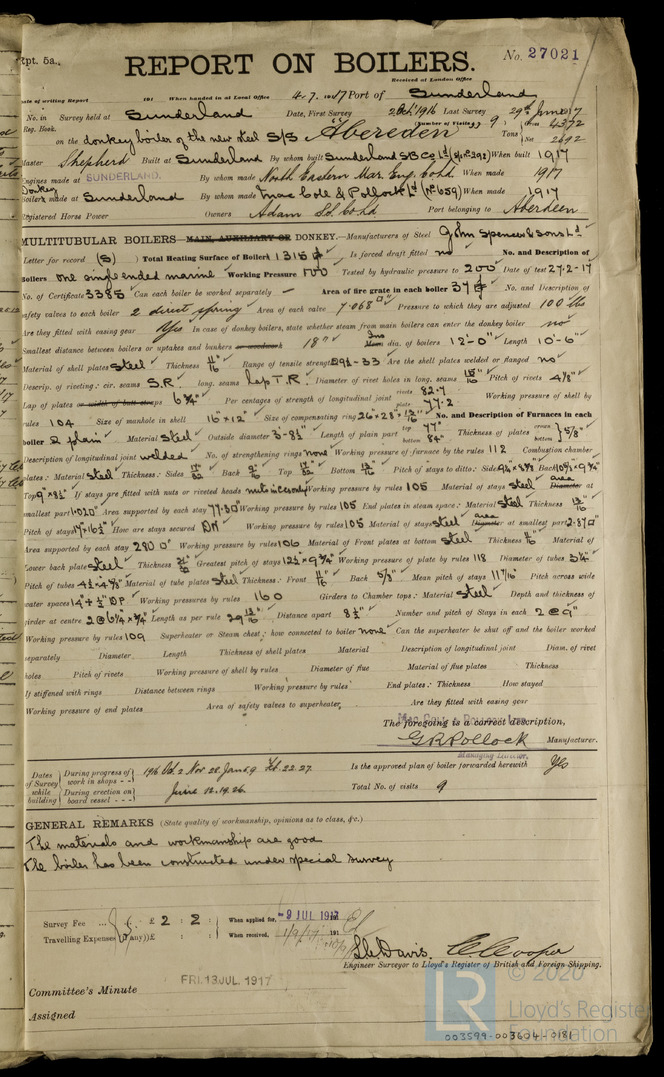 Rpt. 5a.
REPORT ON BOILERS.
No. 27021
Received at London Office
Date of writing Report 191 When handed in at Local Office 4.7.1917 Port of Sunderland
No. in Survey held at Sunderland Date, First Survey 2 Oct 1916 Last Survey 29th June 1917
Reg. Book. (Number of Visits) 9
on the donkey boiler of the new steel S/S Aberdeen Tons Gross 4372 Net 2692
Master Shepherd Built at Sunderland By whom built Sunderland S.B. Co Ld (No 292) When built 1917
Engines made at SUNDERLAND. By whom made North Eastern Mar. Eng. Co Ld When made 1917
Donkey
Boilers made at Sunderland By whom made MacColl & Pollock Ld (No 659) When made 1917
Registered Horse Power Owners Adam Port belonging to Aberdeen
MULTITUBULAR BOILERS MAIN, AUXILIARY OR DONKEY.—Manufacturers of Steel John Spencer & Sons Ld
Letter for record (S) Total Heating Surface of Boilers 1315 Is forced draft fitted no No. and Description of
Boilers one single ended marine Working Pressure 100 Tested by hydraulic pressure to 200 Date of test 27.2.17
No. of Certificate 3385 Can each boiler be worked separately — Area of fire grate in each boiler 37 No. and Description of
safety valves to each boiler 2 direct spring Area of each valve 7.068 Pressure to which they are adjusted 100 lbs
Are they fitted with easing gear Yes In case of donkey boilers, state whether steam from main boilers can enter the donkey boiler no
Smallest distance between boilers or uptakes and bunkers or woodwork 18" Ins dia. of boilers 12'-0" Length 10'-6"
Material of shell plates Steel Thickness 11/16 Range of tensile strength 29½-33 Are the shell plates welded or flanged no
Descrip. of riveting: cir. seams S.R. long. seams lap T.R. Diameter of rivet holes in long. seams 15/16 Pitch of rivets 4 1/8"
Lap of plates or width of butt straps 6¾" Per centages of strength of longitudinal joint rivets 82.7 plate 77.2 Working pressure of shell by
rules 104 Size of manhole in shell 16"x12" Size of compensating ring 26"x28"x No. and Description of Furnaces in each
boiler 2 plain Material Steel Outside diameter 3'-8½" Length of plain part top 77" bottom 84" Thickness of plates crown bottom 5/8"
Description of longitudinal joint welded No. of strengthening rings none Working pressure of furnace by the rules 112 Combustion chamber
plates: Material Steel Thickness: Sides 17/32 Back 9/16 Top 17/32 Bottom Pitch of stays to ditto: Sides Back
Top 9"x8½" If stays are fitted with nuts or riveted heads nuts inside only Working pressure by rules 105 Material of stays Steel area Diameter at
smallest part 1.020" Area supported by each stay 77.30 Working pressure by rules 105 End plates in steam space: Material Steel Thickness
Pitch of stays 17"x16½" How are stays secured DN Working pressure by rules 105 Material of stays steel area Diameter at smallest part 2.87
Area supported by each stay 280.0 Working pressure by rules 106 Material of Front plates at bottom Steel Thickness 11/16 Material of
Lower back plate Steel Thickness Greatest pitch of stays 12½x9¾" Working pressure of plate by rules 118 Diameter of tubes 3¼"
Pitch of tubes 4½x4 5/8" Material of tube plates Steel Thickness: Front 11/16 Back 5/8" Mean pitch of stays 11"/16 Pitch across wide
water spaces 14"+½"DP Working pressures by rules 160 Girders to Chamber tops: Material Steel Depth and thickness of
girder at centre 2@6¼x¾" Length as per rule 29 Distance apart 8½" Number and pitch of Stays in each 2@9"
Working pressure by rules 109 Superheater or Steam chest; how connected to boiler none Can the superheater be shut off and the boiler worked
separately Diameter Length Thickness of shell plates Material Description of longitudinal joint Diam. of rivet
holes Pitch of rivets Working pressure of shell by rules Diameter of flue Material of flue plates Thickness
If stiffened with rings Distance between rings Working pressure by rules End plates: Thickness How stayed
Working pressure of end plates Area of safety valves to superheater Are they fitted with easing gear
The foregoing is a correct description,
G R Pollock Manufacturer.
Managing Director.
Dates of Survey while building
During progress of work in shops - - 1916 Oct. 2 Nov. 28. Jan. 5. 9 Feb 22. 27.
During erection on board vessel - - - June 12. 19. 26.
Is the approved plan of boiler forwarded herewith Yes
Total No. of visits 9
GENERAL REMARKS (State quality of workmanship, opinions as to class, &c.)
The materials and workmanship are good
The boiler has been constructed under special survey
Survey Fee ... £ 2 : 2 : When applied for, -9 JUL 1917
Travelling Expenses (if any) £ : : When received, 1/9/17 191
L. C. Davis. C. Cooper
Engineer Surveyor to Lloyd's Register of British and Foreign Shipping.
FRI. 13 JUL. 1917
Committee's Minute
Assigned
© 2020
LR
Lloyd's Register
Foundation
003599-003604-0181